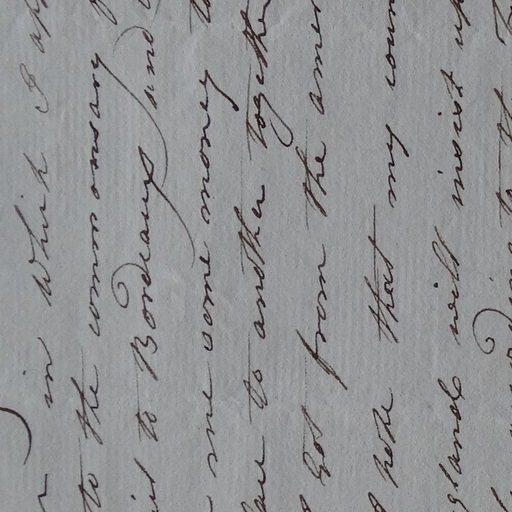 in which I
to the commonsary
to Bordeaux and
me some money
to another together
Got from the amer
hope that my coun
gland will insist up
to th